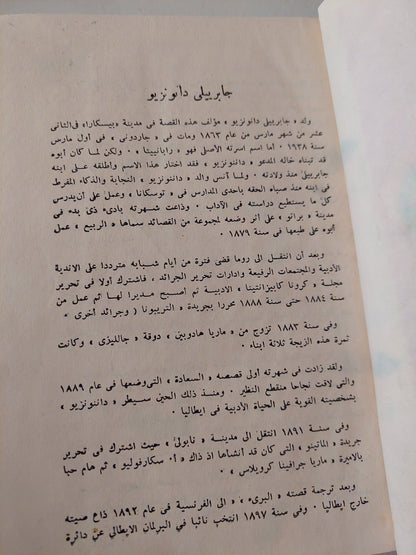 جابرييلى دانونزيو
ولد « جابرييلى دانونزيو » مؤلف هذه القصة فى مدينة «بيسكارا» فى الثانى
عشر من شهر مارس من عام ١٨٦٣ ومات فى « جاردونى » فى أول مارس
سنة ١٩٣٨ ٠ أما اسم أسرته الأصلى فهو « رابانيتا » ٠ ولكن لما كان أبوه
قد تبناه خاله المدعو « داننونزيو » فقد اختار هذا الاسم وأطلقه على ابنه
منذ ولادته ٠ ولما آنس والد « داننونزيو » النجابة والذكاء المفرط
فى ابنه منذ صباه الحقه باحدى المدارس فى « توسكانا » وعمل على أن يدرس
كل ما يستطيع دراسته فى الآداب ٠ وذاعت شهرته بادىء ذى بدء فى
مدينة « براتو » على أثر وضعه لمجموعة من القصائد سماها « الربيع » عمل
أبوه على طبعها فى سنة ١٨٧٩ ٠
وبعد أن انتقل الى روما قضى فترة من أيام شبابه مترددا على الاندية
الأدبية والمجتمعات الرفيعة وادارات تحرير الجرائد ، فاشترك أولا فى تحرير
مجلة « كرونا كابيزانتينا » الادبية ثم أصبح مديرا لها ثم عمل من
سنة ١٨٨٤ حتى سنة ١٨٨٨ محررا بجريدة « التريبونا ) وجرائد أخرى ٠
وفى سنة ١٨٨٣ تزوج من « ماريا هاردوين » دوقة « جالليزى » وكانت
ثمرة هذه الزيجة ثلاثة ابناء ٠
ولقد زادت فى شهرته أولى قصصه « السعادة » التى وضعها فى عام ١٨٨٩
والتى لاقت نجاحا منقطع النظير ٠ ومنذ ذلك الحين سيطر « داننونزيو »
بشخصيته القوية على الحياة الأدبية فى ايطاليا ٠
وفى سنة ١٨٩١ انتقل الى مدينة « نابولى » حيث اشترك فى تحرير
جريدة « الماتينو » التى كان قد انشاها اذ ذاك « أ٠ سكارفوليو » ثم هام حبا
بالاميرة « ماريا جرافينا كرويلاس » ٠
وبعد ترجمة قصته « البرىء » الى الفرنسية فى عام ١٨٩٣ ذاع صيته
خارج ايطاليا ٠ وفى سنة ١٨٩٧ انتخب نائبا فى البرلمان الايطالى عن دائرة